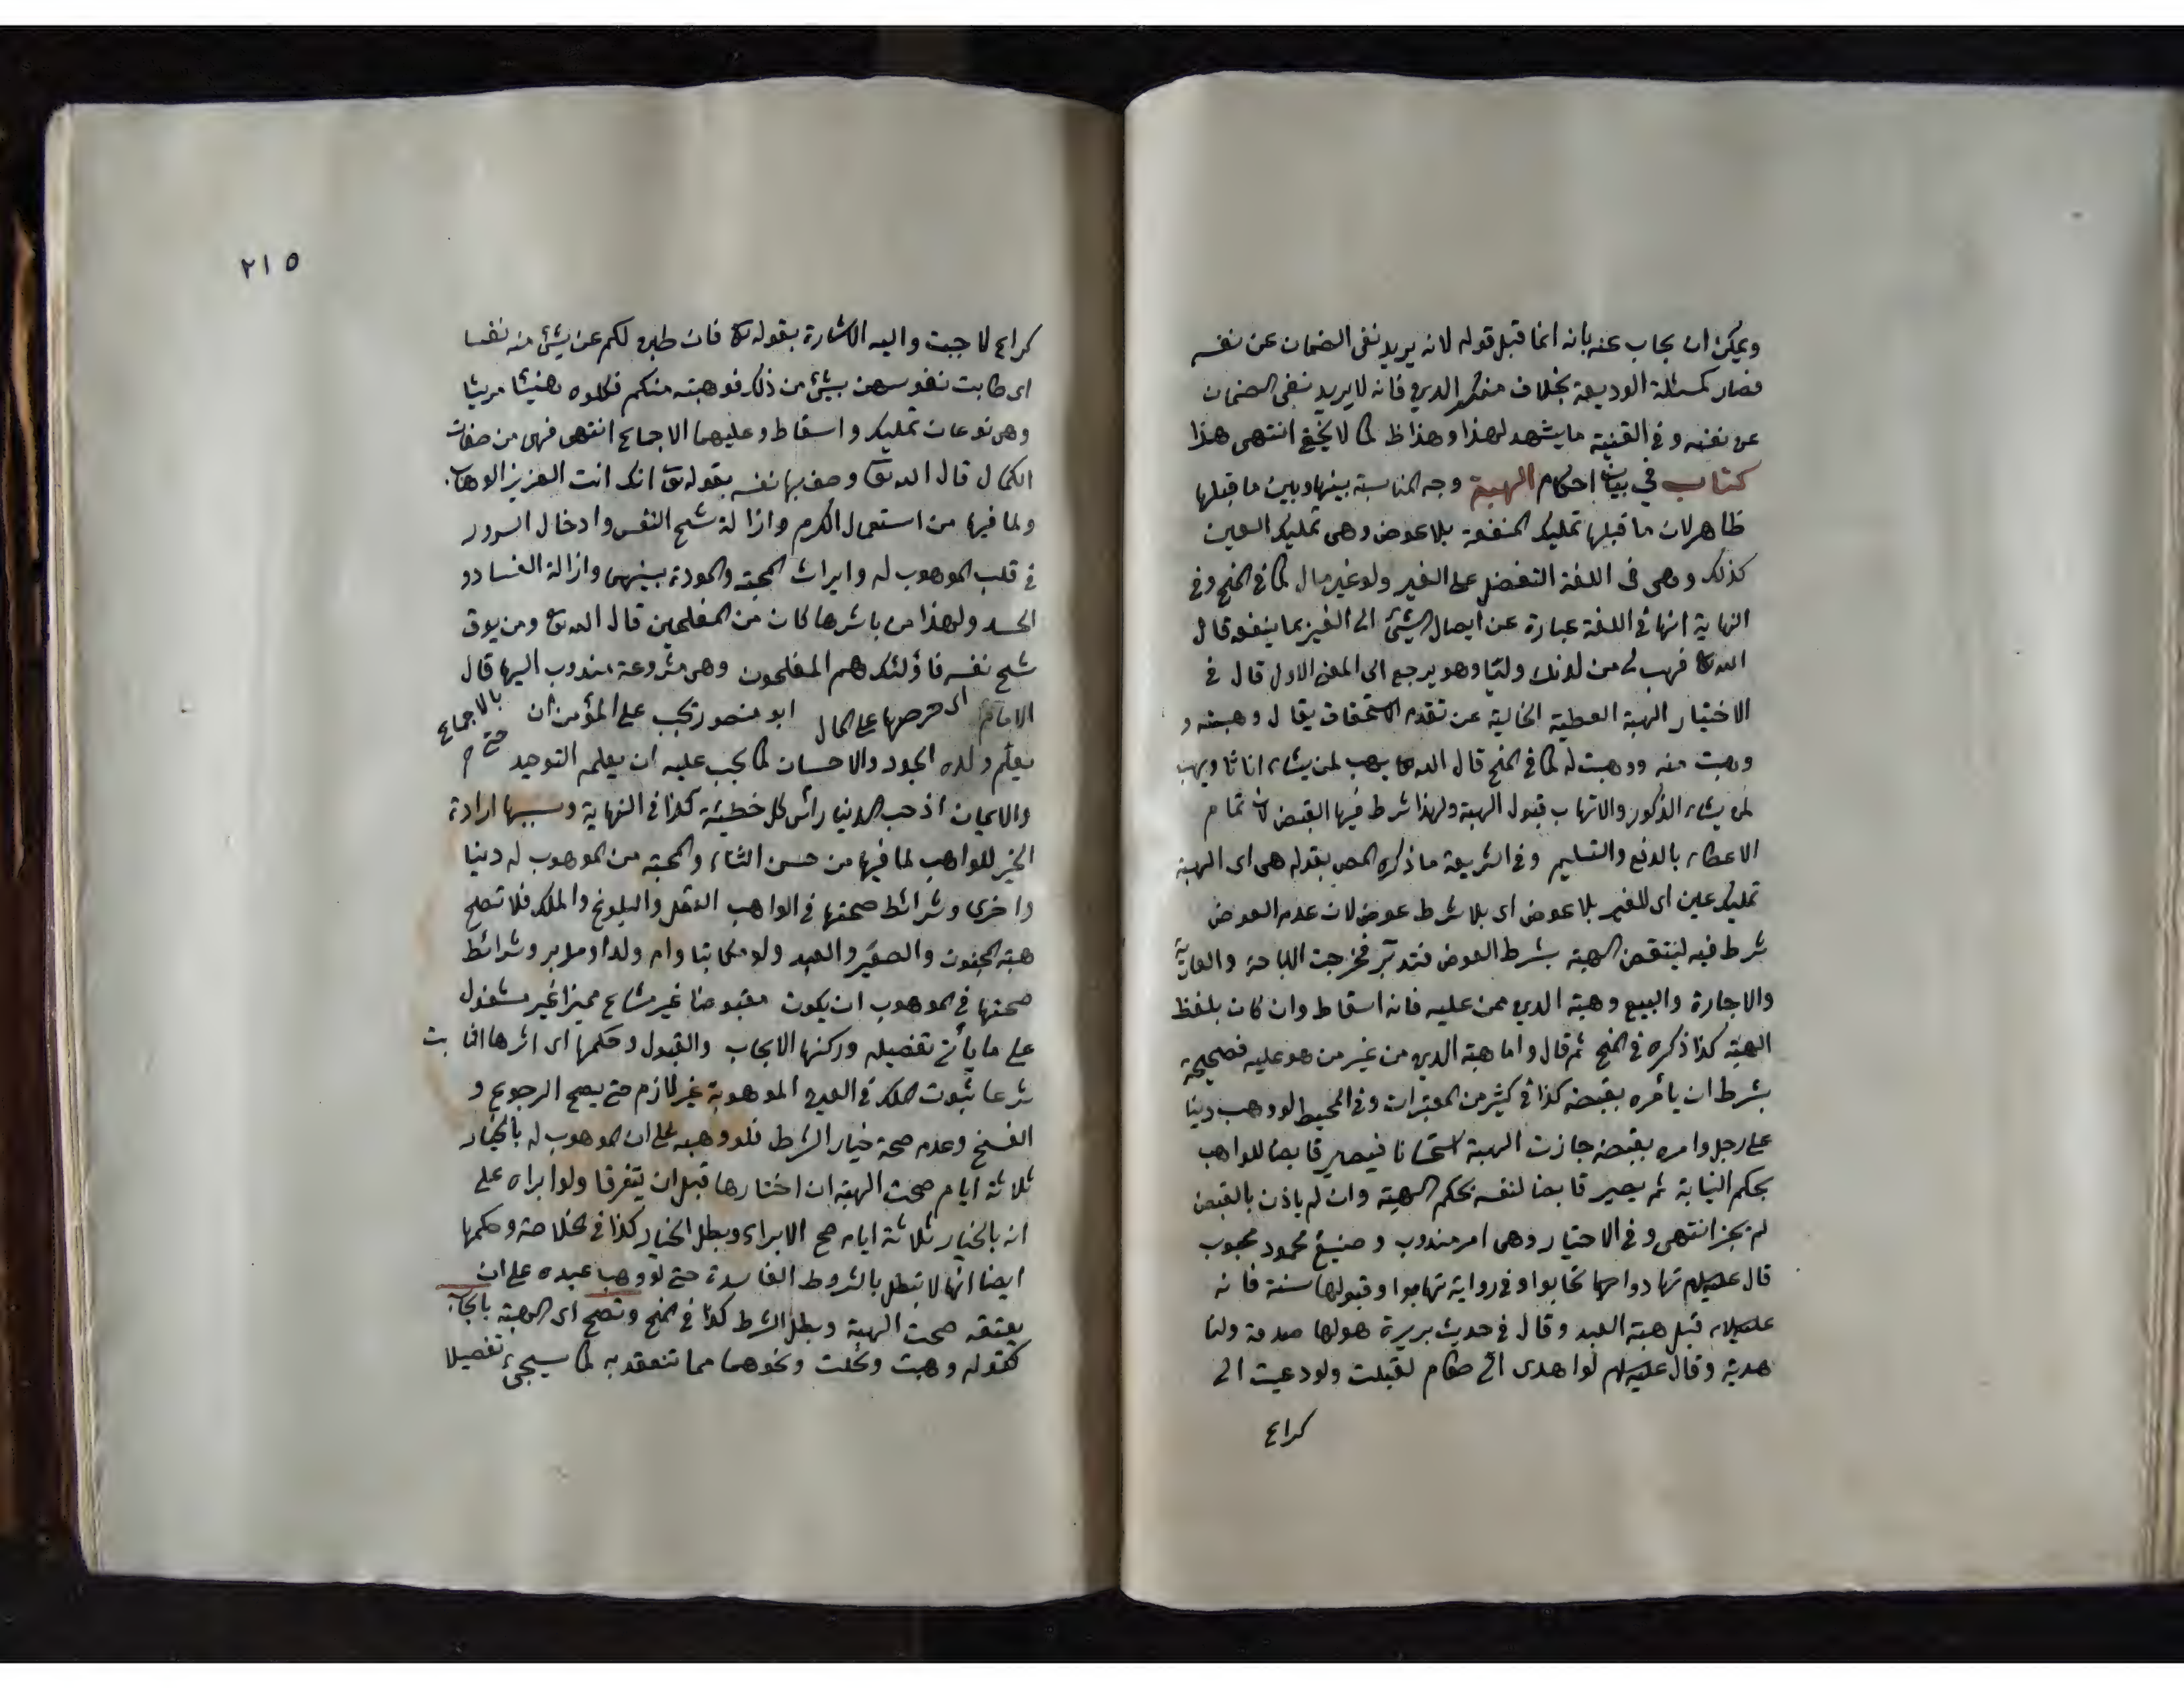 ويمكن ان يجاب عنه بانه انما قبل قوله لانه يريد نفى الضمان عن نفسه
فصار كمسئلة الوديعة بخلاف منكر الدين فانه لا يريد نفى الضمان
عن نفسه وفى القنية ما يشهد لهذا وهذا ظ كما لا يخفى انتهى هذا
كتاب في بيان احكام الهبة وجه المناسبة بينها وبين ما قبلها
ظاهر لان ما قبلها تمليك المنفعة بلا عوض وهى تمليك العين
كذلك وهى فى اللغة التفضل على الغير ولو غير مال كما فى المنح وفى
النهاية انها فى اللغة عبارة عن ايصال الشئ الى الغير بما ينفعه قال
الله تعا فهب لى من لدنك وليا وهو يرجع الى المعنى الاول قال فى
الاختيار الهبة العطية الخالية عن تقدم الاستحقاق يقال وهبته و
وهبت منه ووهبت له كما فى المنح قال الله تعا يهب لمن يشاء اناثا ويهب
لمن يشاء الذكور والاتهاب قبول الهبة ولهذا شرط فيها القبض لان تمام
الاعطاء بالدفع والتسليم وفى الشريعة ما ذكره المص بقوله هى اى الهبة
تمليك عين اى للغير بلا عوض اى بلا شرط عوض لان عدم العوض
شرط فيه لينتقض الهبة بشرط العوض فتدبر فخرجت الاباحة والعارية
والاجارة والبيع وهبة الدين ممن عليه فانه اسقاط وان كان بلفظ
الهبة كذا ذكره فى المنح ثم قال واما هبة الدين من غير من هو عليه فصحيحة
بشرط ان يأمره بقبضه كذا فى كثير من المعتبرات وفى المحيط لو وهب دينا
على رجل وامره بقبضه جازت الهبة استحسانا فيصير قابضا للواهب
بحكم النيابة ثم يصير قابضا لنفسه بحكم الهبة وان لم ياذن بالقبض
لم يجز انتهى وفى الاختيار وهى امر مندوب وصنيع محمود محبوب
قال عليه السلام تهادوا تحابوا وفى رواية تهابوا وقبولها سنة فانه
عليه السلام قبل هبة العبد وقال فى حديث بريرة هو لها صدقة ولنا
هدية وقال عليه السلام لو اهدى الى طعام لقبلت ولو دعيت الى
كراع
٢١٥
كراع لاجبت واليه الاشارة بقوله تعا فان طبن لكم عن شئ منه نفسا
اى طابت نفوسهن بشئ من ذلك فوهبنه منكم فكلوه هنيئا مريئا
وهى نوعان تمليك واسقاط وعليهما الاجماع انتهى فهى من صفات
الكمال قال الله تعا وصف بها نفسه بقوله تعا انك انت العزيز الوهاب
ولما فيها من استعمال الكرم وازالة شح النفس وادخال السرور
فى قلب الموهوب له وايراث المحبة والمودة بينهما وازالة الفساد و
الحسد ولهذا من باشرها كان من المفلحين قال الله تعا ومن يوق
شح نفسه فاولئك هم المفلحون وهى مشروعة مندوب اليها قال
بالاجماع
الامام اى حرصها على المال ابو منصور يجب على المؤمن ان
يعلم ولده الجود والاحسان كما يجب عليه ان يعلمه التوحيد
والايمان اذ حب الدنيا رأس كل خطيئة كذا فى النهاية وسببها ارادة
الخير للواهب لما فيها من حسن الثناء والمحبة من الموهوب له دينا
واخرى وشرائط صحتها فى الواهب العقل والبلوغ والملك فلا تصح
هبة المجنون والصغير والعبد ولو مكاتبا وام ولد او مدبر وشرائط
صحتها فى الموهوب ان يكون مقبوضا غير مشاع مميزا غير مشغول
على ما يأتى تفصيله وركنها الايجاب والقبول وحكمها اى اثرها الثابت
شرعا ثبوت الملك فى العين الموهوبة غير لازم حتى يصح الرجوع و
الفسخ وعدم صحة خيار الشرط فلو وهبه على ان الموهوب له بالخيار
ثلاثة ايام صحت الهبة ان اختارها قبل ان يتفرقا ولو ابراه على
انه بالخيار ثلاثة ايام صح الابراء وبطل الخيار كذا فى الخلاصة وحكمها
ايضا انها لا تبطل بالشروط الفاسدة حتى لو وهب عبده على ان
يعتقه صحت الهبة وبطل الشرط كذا فى المنح وتصح اى الهبة بايجاب
كقوله وهبت ونحلت ونحوهما مما تنعقد به كما سيجئ تفصيلا